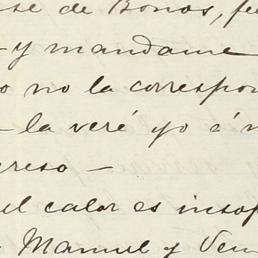 de Bonos, fe
- y mandame
no la correspon
- la veré yo á m
ereso -
el calor es insop
Manuel y Ven